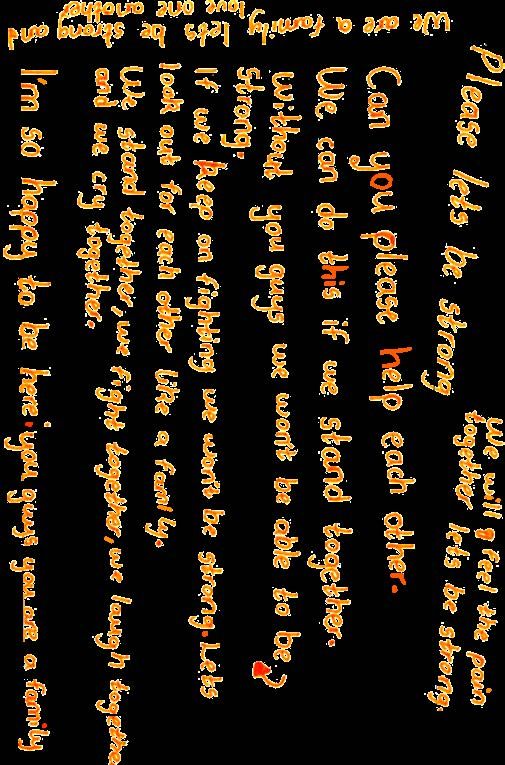 Please lets be strong
We will feel the pain
together lets be strong.
Can you please help each other.
We can do this if we stand together.
Without you guys we wont be able to be
strong.
If we keep on fighting we wont be strong. Lets
look out for each other like a family.
We stand together, we fight together, we laugh together
and we cry together.
I'm so happy to be here you guys you are a family
We are a family lets be strong and
love one another